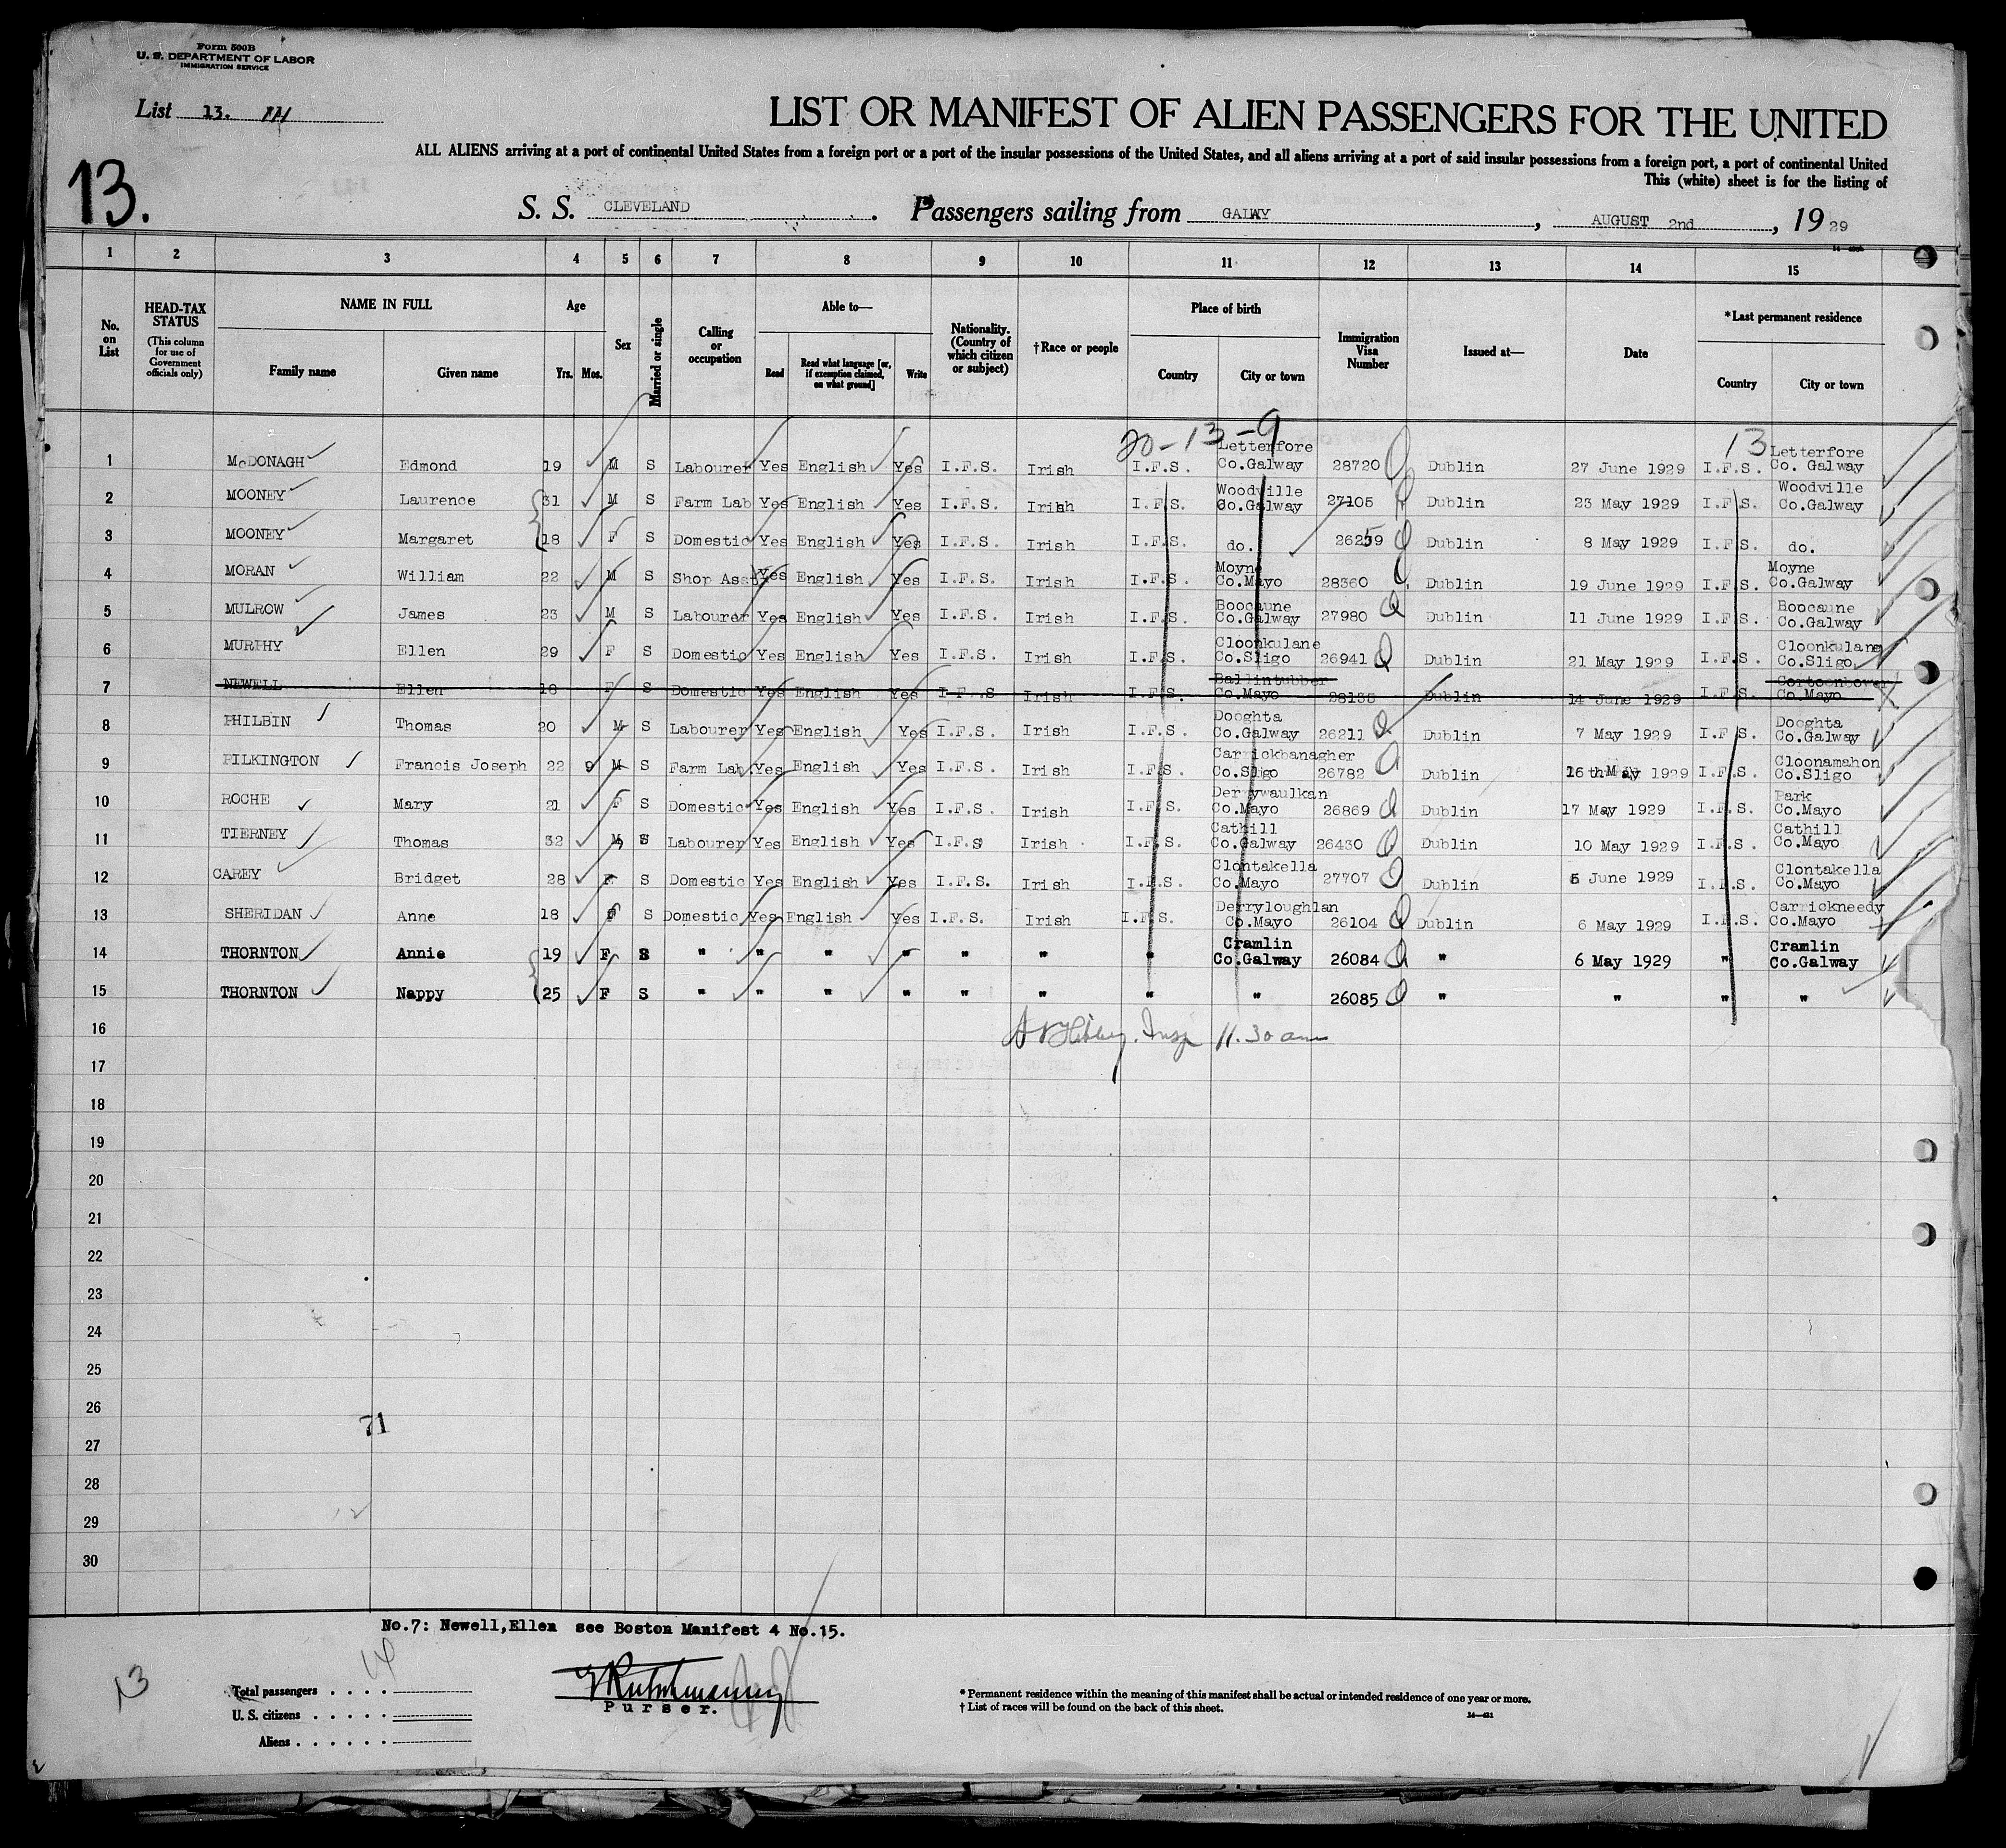 Form 500B
U. S. DEPARTMENT OF LABOR
IMMIGRATION SERVICE
List 13. 14
LIST OR MANIFEST OF ALIEN PASSENGERS FOR THE UNITED
ALL ALIENS arriving at a port of continental United States from a foreign port or a port of the insular possessions of the United States, and all aliens arriving at a port of said insular possessions from a foreign port, a port of continental United
This (white) sheet is for the listing of
13.
S. S. CLEVELAND. Passengers sailing from GALWAY, AUGUST 2nd, 1929
1 2 3 4 5 6 7 8 9 10 11 12 13 14 15
No. on List
HEAD-TAX STATUS (This column for use of Government officials only)
NAME IN FULL
Family name Given name
Age
Yrs. Mos.
Sex
Married or single
Calling or occupation
Able to—
Read Read what language [or, if exemption claimed, on what ground] Write
Nationality. (Country of which citizen or subject)
†Race or people
Place of birth
Country City or town
Immigration Visa Number
Issued at—
Date
*Last permanent residence
Country City or town
20-13-9 13
1 McDONAGH Edmond 19 M S Labourer Yes English Yes I.F.S. Irish I.F.S. Letterfore Co.Galway 28720 Dublin 27 June 1929 I.F.S. Letterfore Co. Galway
2 MOONEY Laurence 31 M S Farm Lab Yes English Yes I.F.S. Irish I.F.S. Woodville Co.Galway 27105 Dublin 23 May 1929 I.F.S. Woodville Co.Galway
3 MOONEY Margaret 18 F S Domestic Yes English Yes I.F.S. Irish I.F.S. do. 26259 Dublin 8 May 1929 I.F.S. do.
4 MORAN William 22 M S Shop Asst Yes English Yes I.F.S. Irish I.F.S. Moyne Co.Mayo 28360 Dublin 19 June 1929 I.F.S. Moyne Co.Galway
5 MULROW James 23 M S Labourer Yes English Yes I.F.S. Irish I.F.S. Boocaune Co.Galway 27980 Dublin 11 June 1929 I.F.S. Boocaune Co.Galway
6 MURPHY Ellen 29 F S Domestic Yes English Yes I.F.S. Irish I.F.S. Cloonkulane Co.Sligo 26941 Dublin 21 May 1929 I.F.S. Cloonkulane Co.Sligo
7 NEWELL Ellen 18 F S Domestic Yes English Yes I.F.S Irish I.F.S. Ballintubber Co.Mayo 28135 Dublin 14 June 1929 I.F.S. Cortoonbover Co.Mayo
8 PHILBIN Thomas 20 M S Labourer Yes English Yes I.F.S. Irish I.F.S. Dooghta Co.Galway 26211 Dublin 7 May 1929 I.F.S. Dooghta Co.Galway
9 PILKINGTON Francis Joseph 22 9 M S Farm Lab. Yes English Yes I.F.S. Irish I.F.S. Carrickbanagher Co.Sligo 26782 Dublin 16th May 1929 I.F.S. Cloonamahon Co.Sligo
10 ROCHE Mary 21 F S Domestic Yes English Yes I.F.S. Irish I.F.S. Derrywaulkan Co.Mayo 26869 Dublin 17 May 1929 I.F.S. Park Co.Mayo
11 TIERNEY Thomas 32 M S Labourer Yes English Yes I.F.S Irish I.F.S. Cathill Co.Galway 26430 Dublin 10 May 1929 I.F.S. Cathill Co.Mayo
12 CAREY Bridget 28 F S Domestic Yes English Yes I.F.S. Irish I.F.S. Clontakella Co.Mayo 27707 Dublin 5 June 1929 I.F.S. Clontakella Co.Mayo
13 SHERIDAN Anne 18 F S Domestic Yes English Yes I.F.S. Irish I.F.S. Derryloughlan Co.Mayo 26104 Dublin 6 May 1929 I.F.S. Carrickneedy Co.Mayo
14 THORNTON Annie 19 F S " " " " " " " Cramlin Co.Galway 26084 " 6 May 1929 " Cramlin Co.Galway
15 THORNTON Nappy 25 F S " " " " " " " " 26085 " " " "
16 Insp 11.30 am
17
18
19
20
21
22
23
24
25
26
71
27
28
29
30
No.7: Newell,Ellen see Boston Manifest 4 No.15.
13
14
Total passengers . . . .
U. S. citizens . . . . .
Aliens . . . . . .
Purser.
* Permanent residence within the meaning of this manifest shall be actual or intended residence of one year or more.
† List of races will be found on the back of this sheet.
14—431